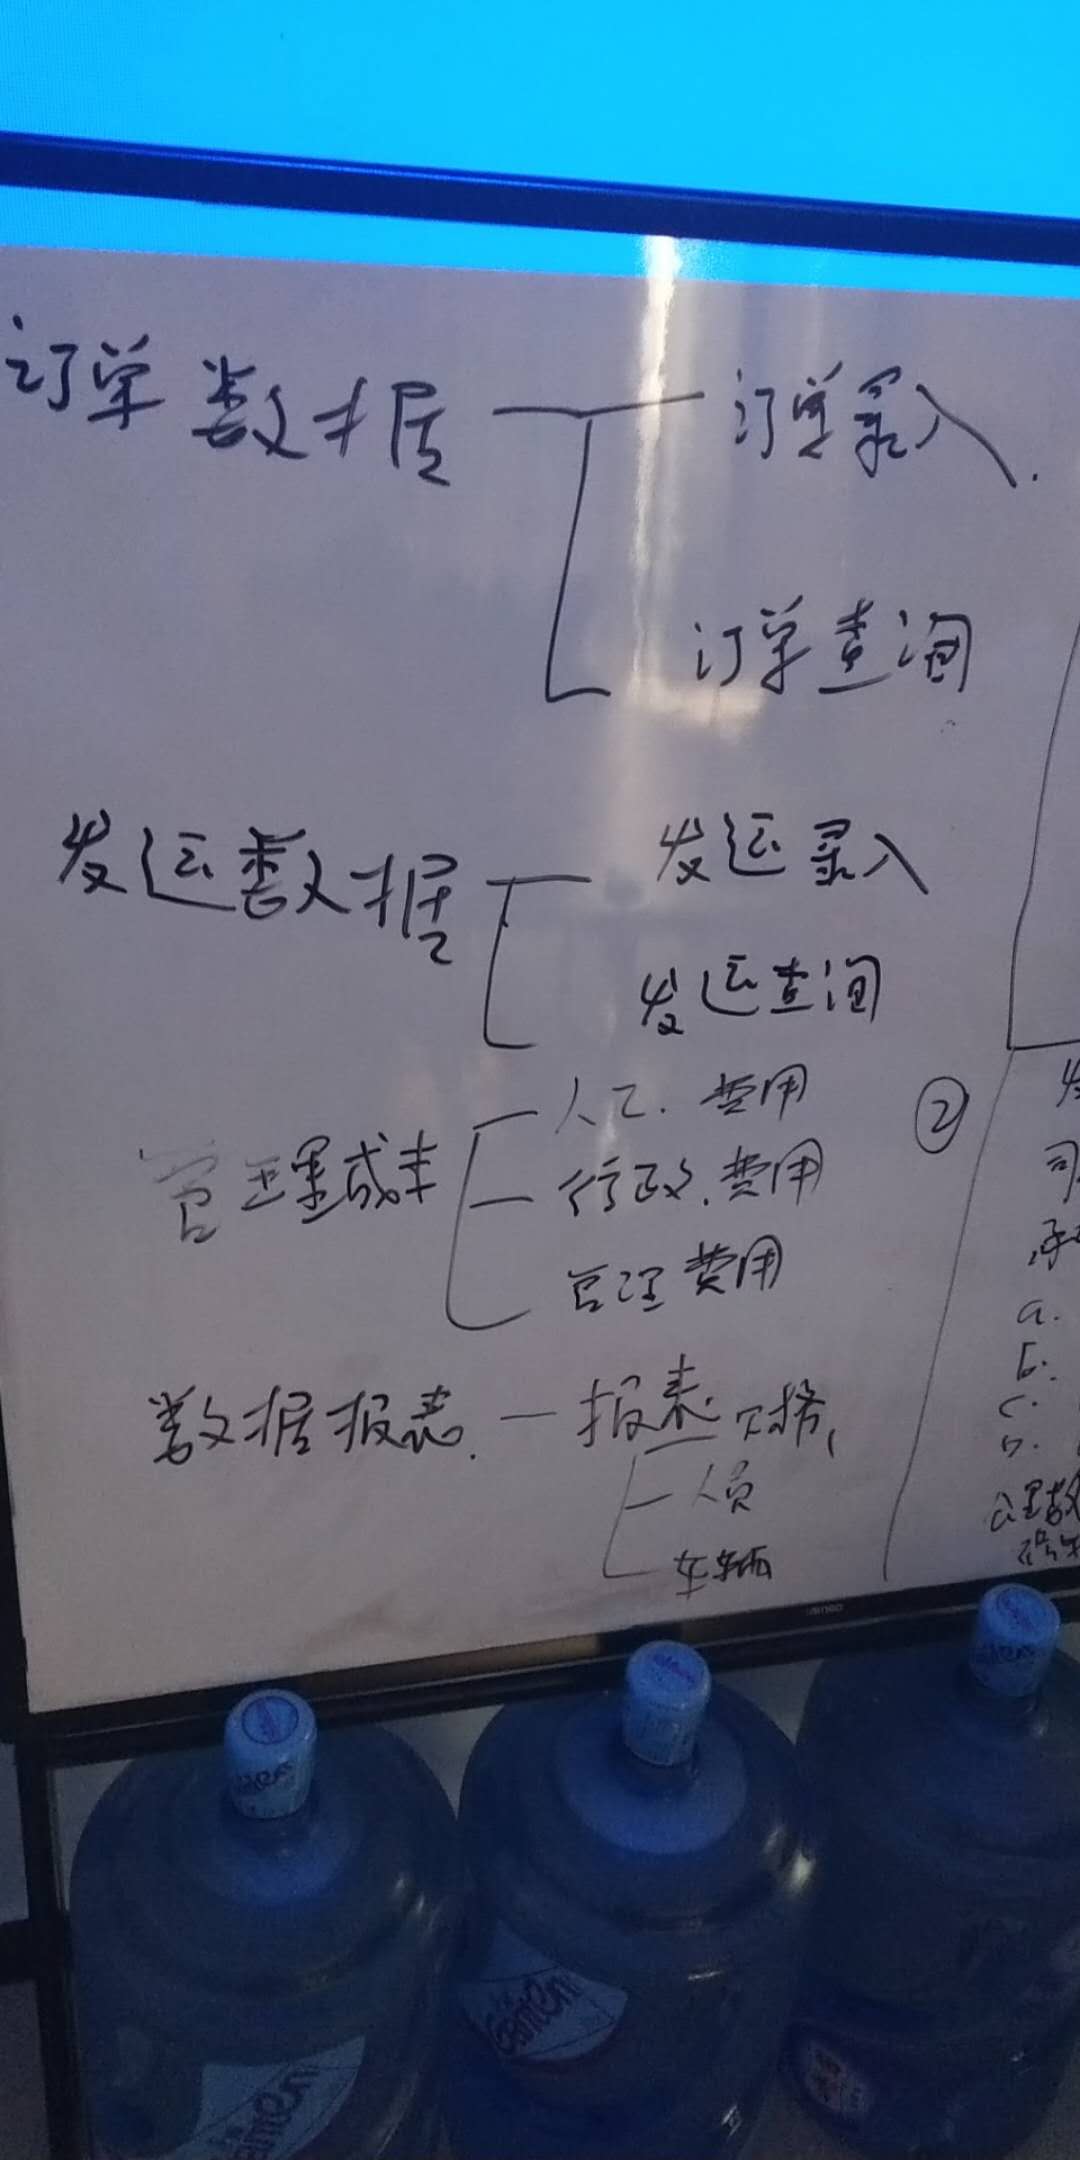 订单数据 订单录入
订单查询
发运数据 发运录入
发运查询
管理成本 人工.费用
行政.费用
管理费用
数据报表. 报表
人员
车辆
②
a.
b.
c.
D.
公里数